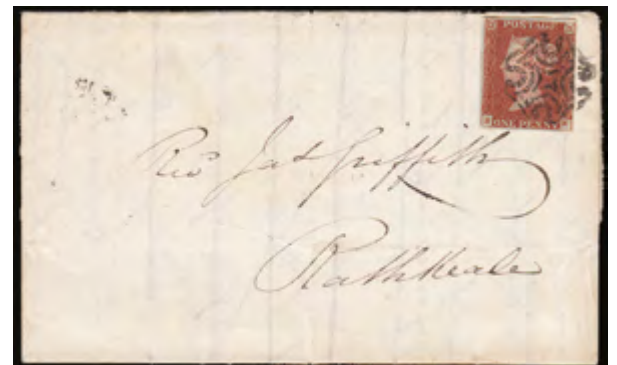 POSTAGE
ONE PENNY
Revd Jas Griffith
Rathkeale